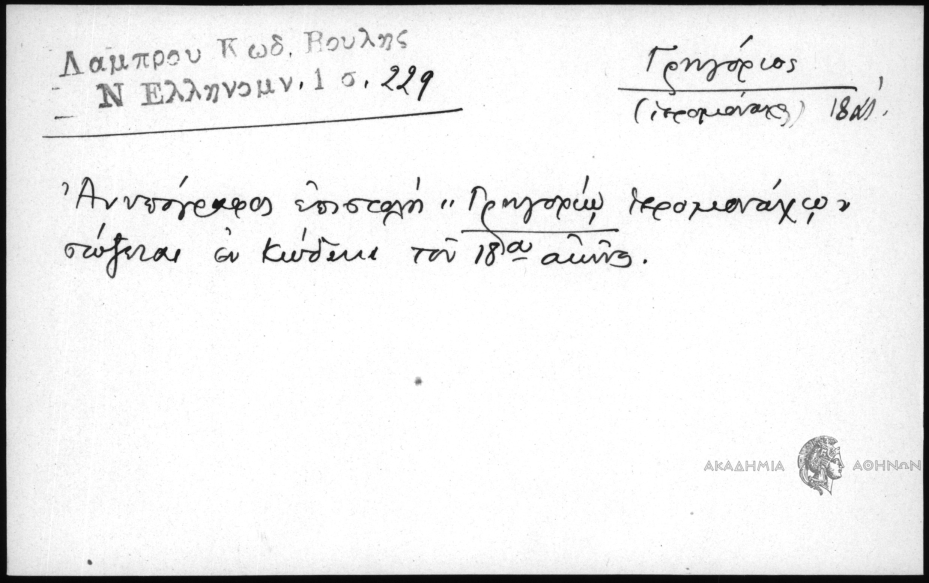 Λαμπρου Κωδ. Βουλης
Ν Ελληνομν. 1 σ. 229
Γρηγόριος
(ἱερομόναχος) 18 αἰ.
Ἀνυπόγραφος ἐπιστολὴ "Γρηγορίῳ ἱερομονάχῳ"
σώζεται ἐν κώδικι τοῦ 18ου αἰῶνος.
ΑΚΑΔΗΜΙΑ ΑΘΗΝΩΝ